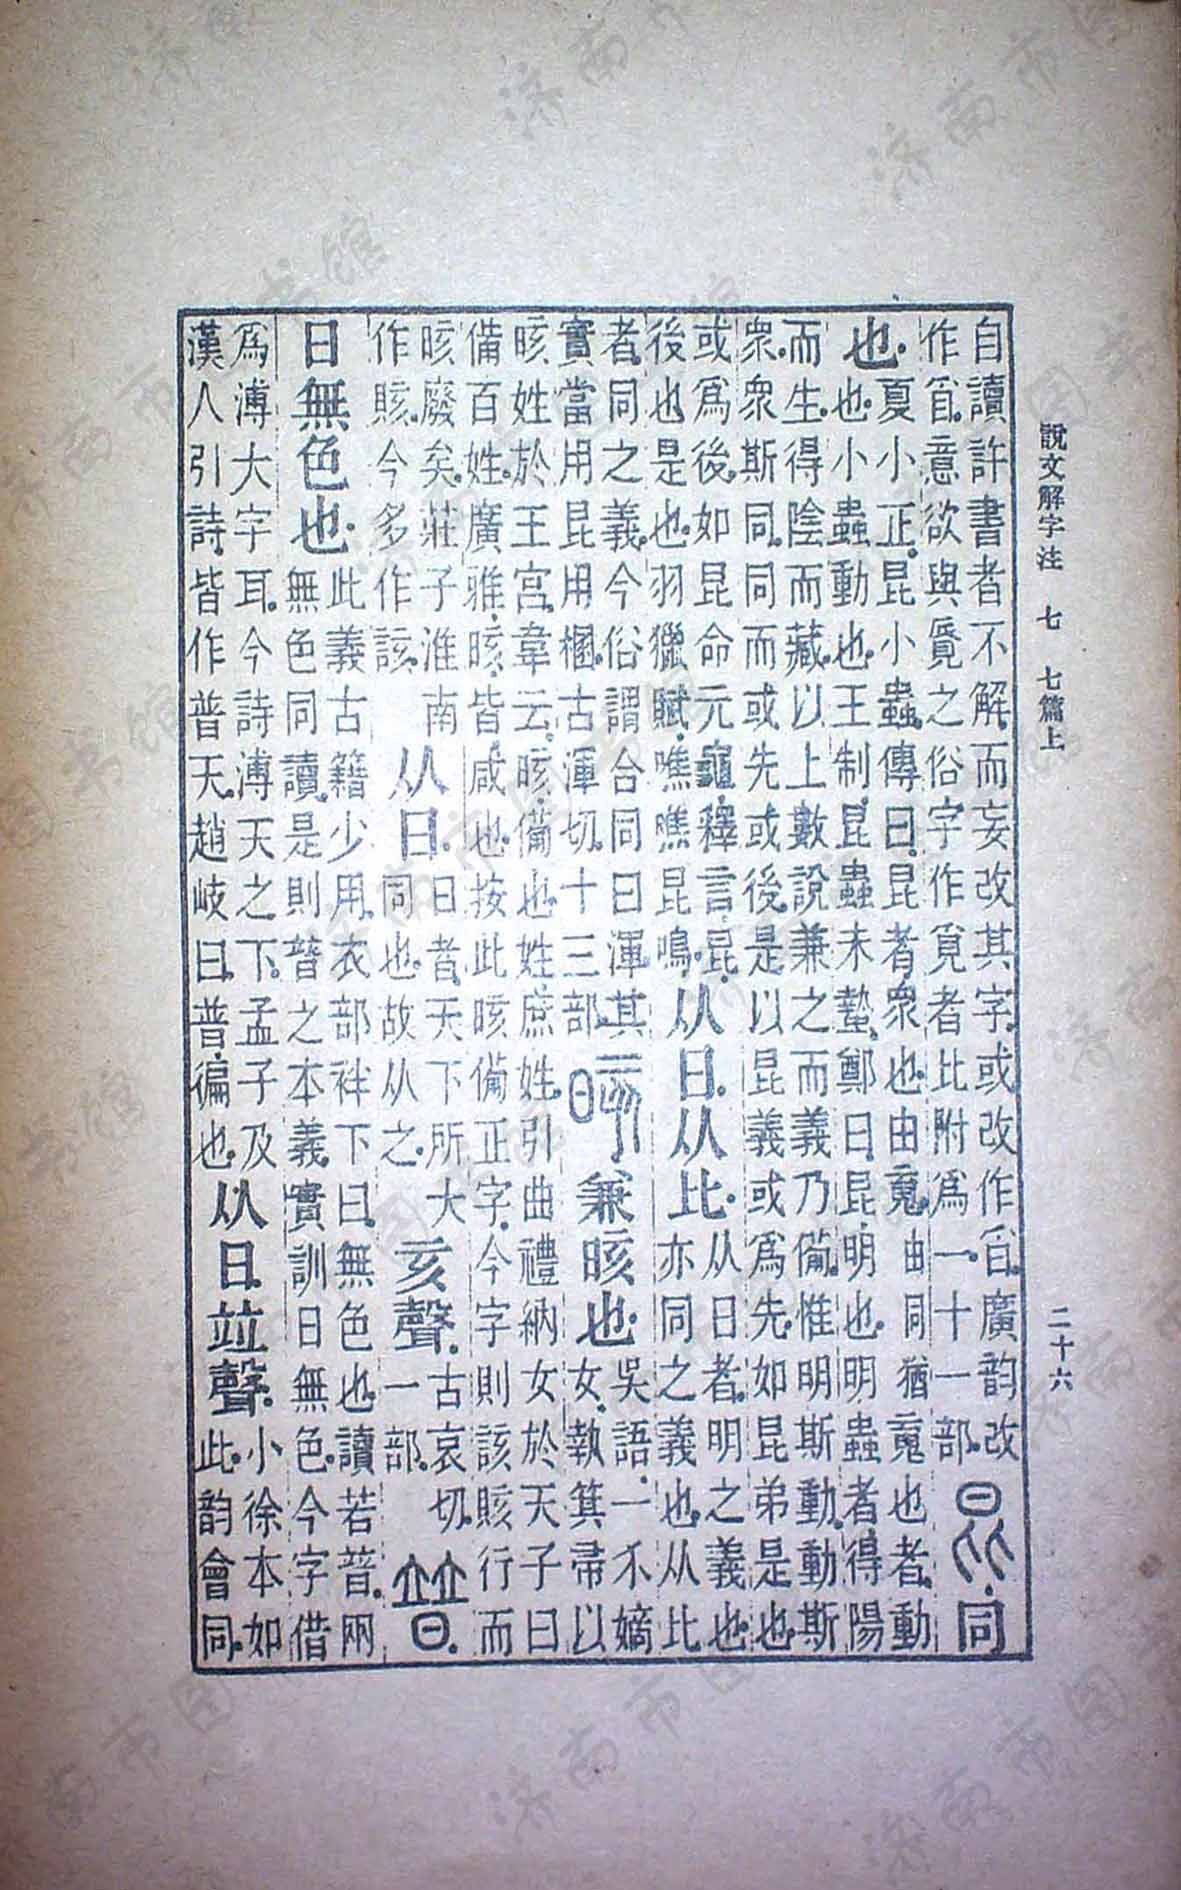 說文解字注 七 七篇上 二十六
自讀許書者不解.而妄改其字.或改作䀏.廣韵改
作䀏.意欲與覛之俗字作覓者比附爲一.十一部.
同
也.
夏小正.昆小蟲.傳曰.昆者.衆也.由䰟.由同猶䰟也者.動
也.小蟲動也.王制.昆蟲未蟄.鄭曰.昆.明也.明蟲者.得陽
而生.得陰而藏.以上數說兼之而義乃備.惟明斯動.動斯
衆.衆斯同.同而或先或後.是以昆義或爲先.如昆弟是也.
或爲後.如昆命元龜.釋言.昆.
後也是也.羽獵賦.噍噍昆鳴.
从日.从比.
从日者.明之義也.
亦同之義也.从比
者.同之義.今俗謂合同曰渾.其
實當用昆用㮯.古渾切.十三部.
兼晐也.
吳語.一不嫡
女.執箕帚以
晐姓於王宮.韋云.晐.備也.姓.庶姓.引曲禮納女於天子曰
備百姓.廣雅.晐.皆咸也.按此晐備正字.今字則該賅行而
晐廢矣.莊子淮南
作賅.今多作該.
从日.
日者.天下所大
同也.故从之.
亥聲.
古哀切.
一部.
日無色也.
此義古籍少用.衣部袢下曰.無色也.讀若普.兩
無色同讀.是則暜之本義.實訓日無色.今字借
爲溥大字耳.今詩溥天之下.孟子及
漢人引詩.皆作普天.趙岐曰.普.徧也.
从日.竝聲.
小徐本如
此.韵會同.